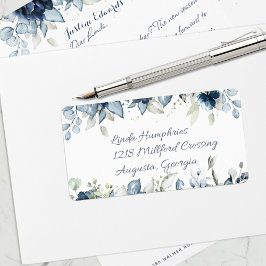 Justene Edwards
Dear Linda,
The new season
Linda Humphries
1218 Millford Crossing
Augusta, Georgia